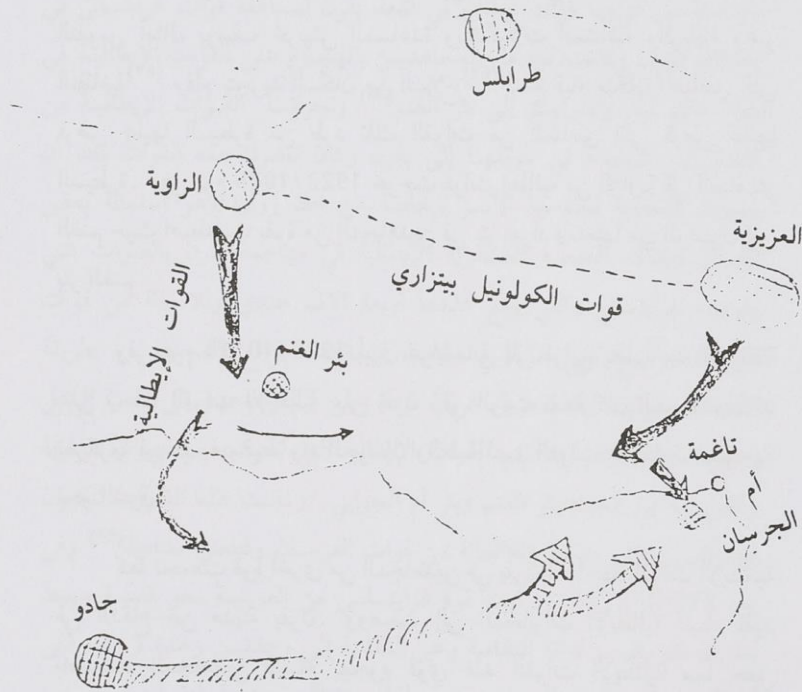 طرابلس
الزاوية
العزيزية
قوات الكولونيل بيتزاري
القوات الإيطالية
بئر الغنم
تاغمة
أم
الجرسان
جادو